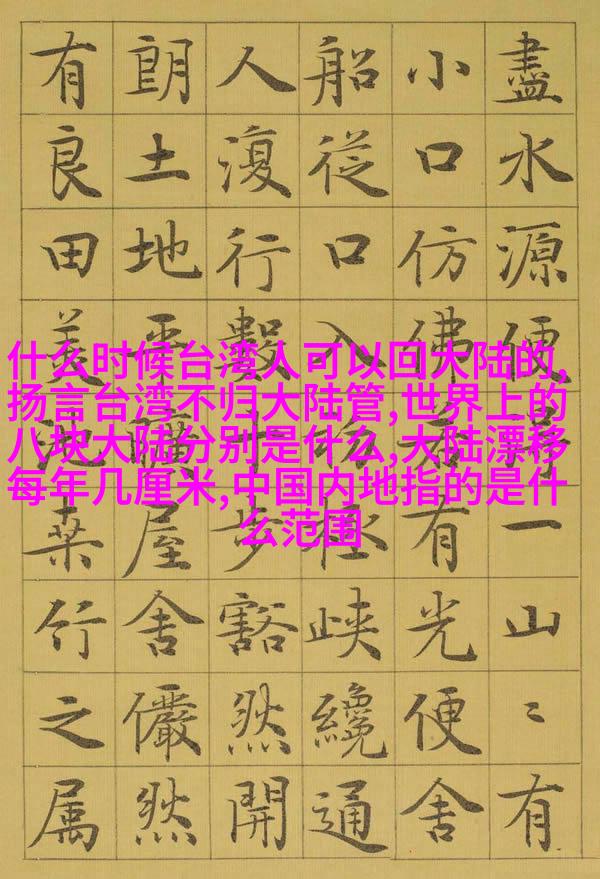 什么时候台湾人可以回大陆的,
扬言台湾不归大陆管,世界上的
八块大陆分别是什么,大陆漂移
每年几厘米,中国内地指的是什
么范围
盡水源便得一山〻有
小口仿佛若有光便舍
船從口入初極峽纔通
人復行數十步豁然開
朗土地平曠屋舍儼然
有良田美池桑竹之属